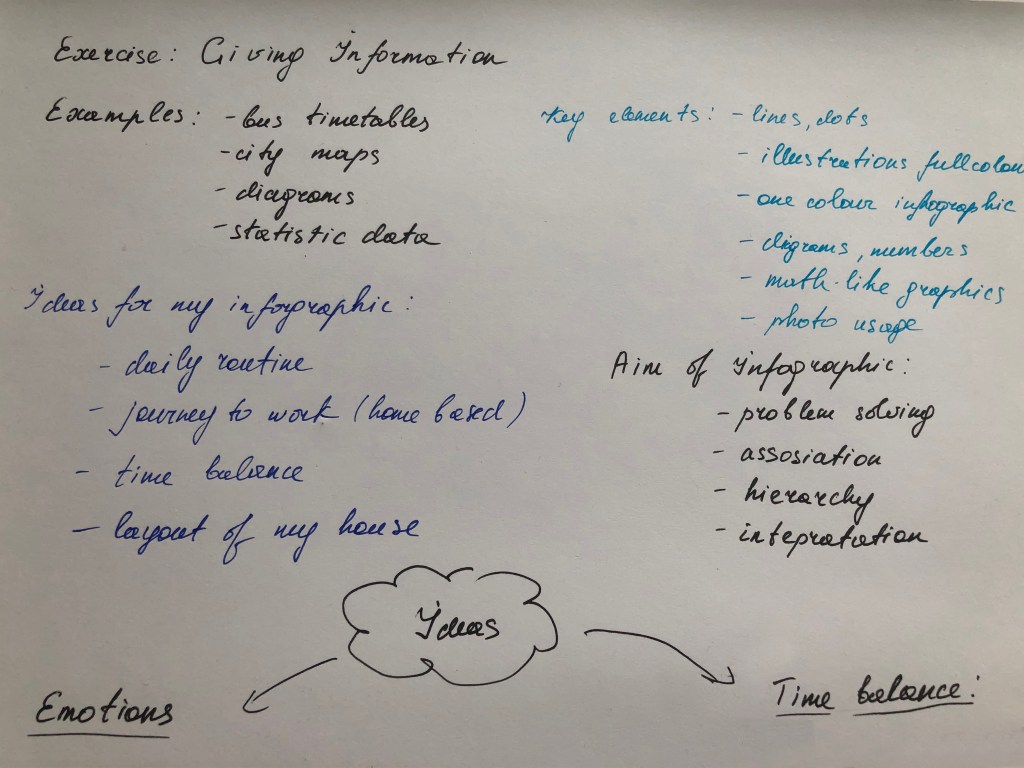 Exercise: Giving Information
Examples: - bus timetables
- city maps
- diagrams
- statistic data
Key elements: - lines, dots
- illustrations fullcolour
- one colour infographic
- digrams, numbers
- math-like graphics
- photo usage
Ideas for my infographic:
- daily routine
- journey to work (home based)
- time balance
- layout of my house
Aim of Infographic:
- problem solving
- assosiation
- hierarchy
- intepratation
Ideas
Emotions
Time balance: